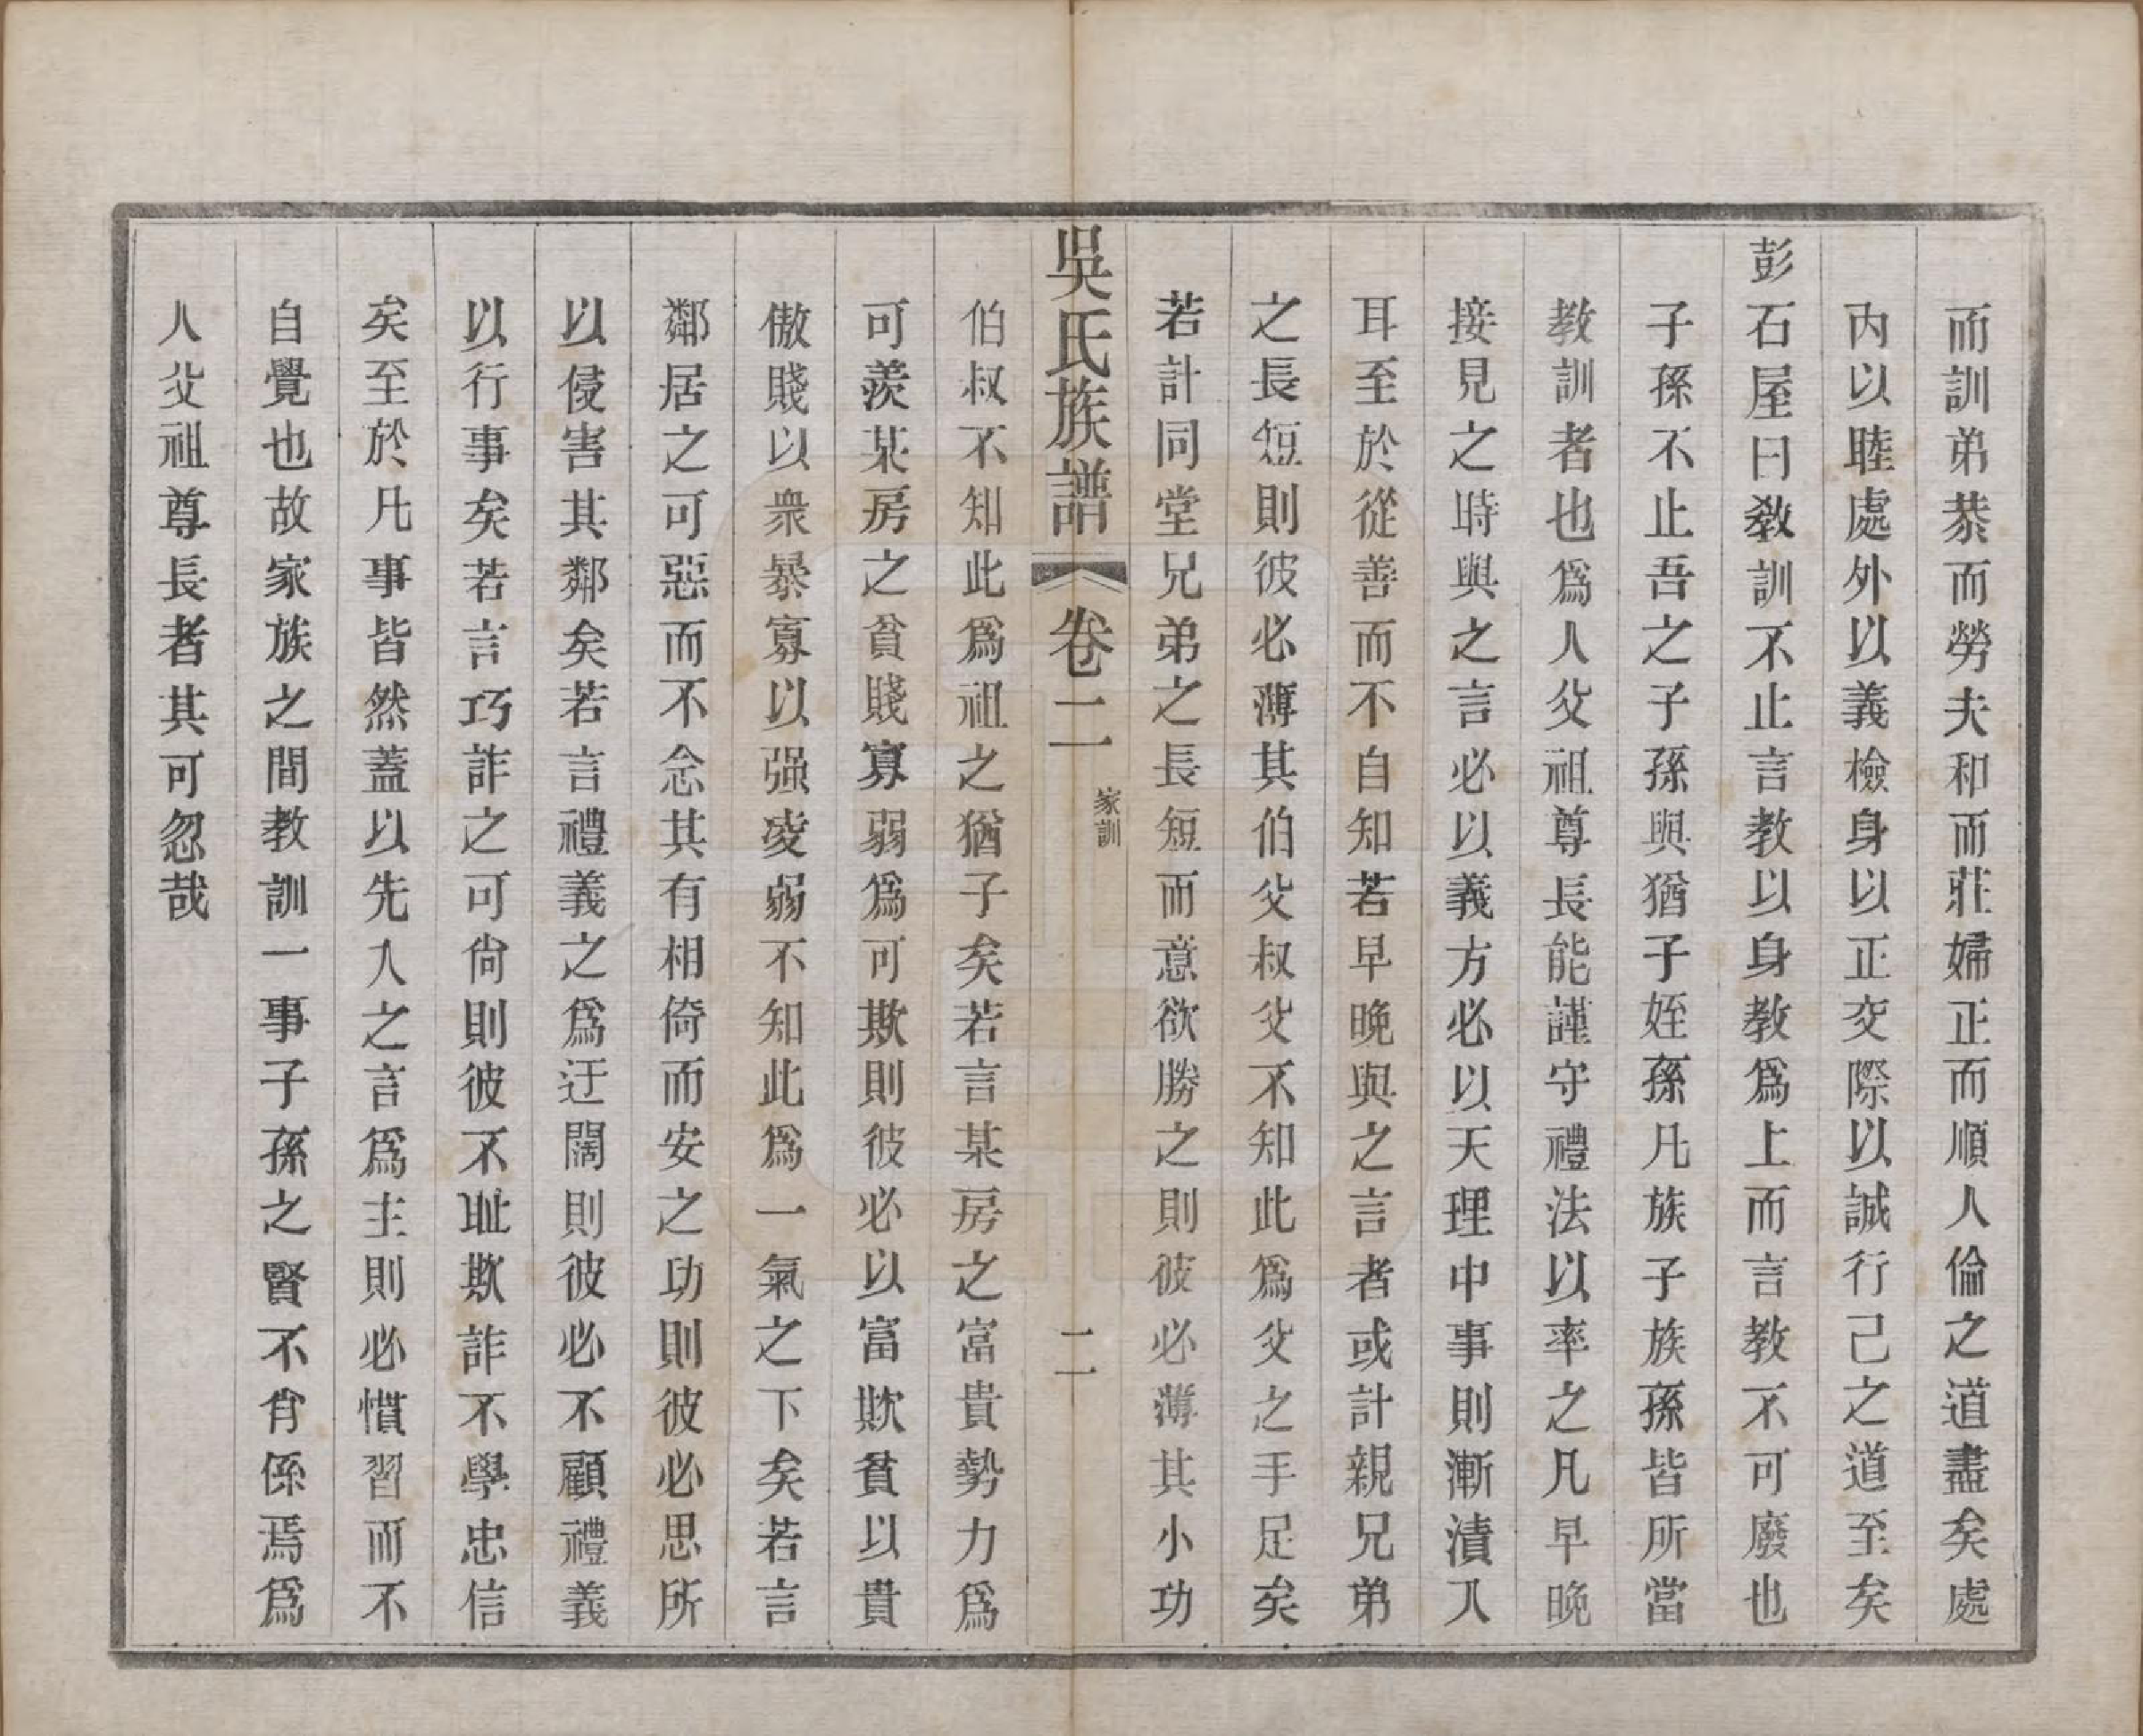 而訓弟恭而勞夫和而莊婦正而順人倫之道盡矣處
内以睦處外以義檢身以正交際以誠行己之道至矣
彭石屋曰敎訓不止言教以身教爲上而言教不可廢也
子孫不止吾之子孫與猶子姪孫凡族子族孫皆所當
教訓者也爲人父祖尊長能謹守禮法以率之凡早晚
接見之時與之言必以義方必以天理中事則漸漬入
耳至於從善而不自知若早晚與之言者或計親兄弟
之長短則彼必薄其伯父叔父不知此爲父之手足矣
若計同堂兄弟之長短而意欲勝之則彼必薄其小功
吳氏族譜 卷二 家訓 二
伯叔不知此爲祖之猶子矣若言某房之富貴勢力爲
可羨某房之貧賤寡弱爲可欺則彼必以富欺貧以貴
傲賤以衆暴寡以强凌弱不知此爲一氣之下矣若言
鄰居之可惡而不念其有相倚而安之功則彼必思所
以侵害其鄰矣若言禮義之爲迂闊則彼必不顧禮義
以行事矣若言巧詐之可尙則彼不耻欺詐不學忠信
矣至於凡事皆然蓋以先人之言爲主則必慣習而不
自覺也故家族之間教訓一事子孫之賢不肖係焉爲
人父祖尊長者其可忽哉